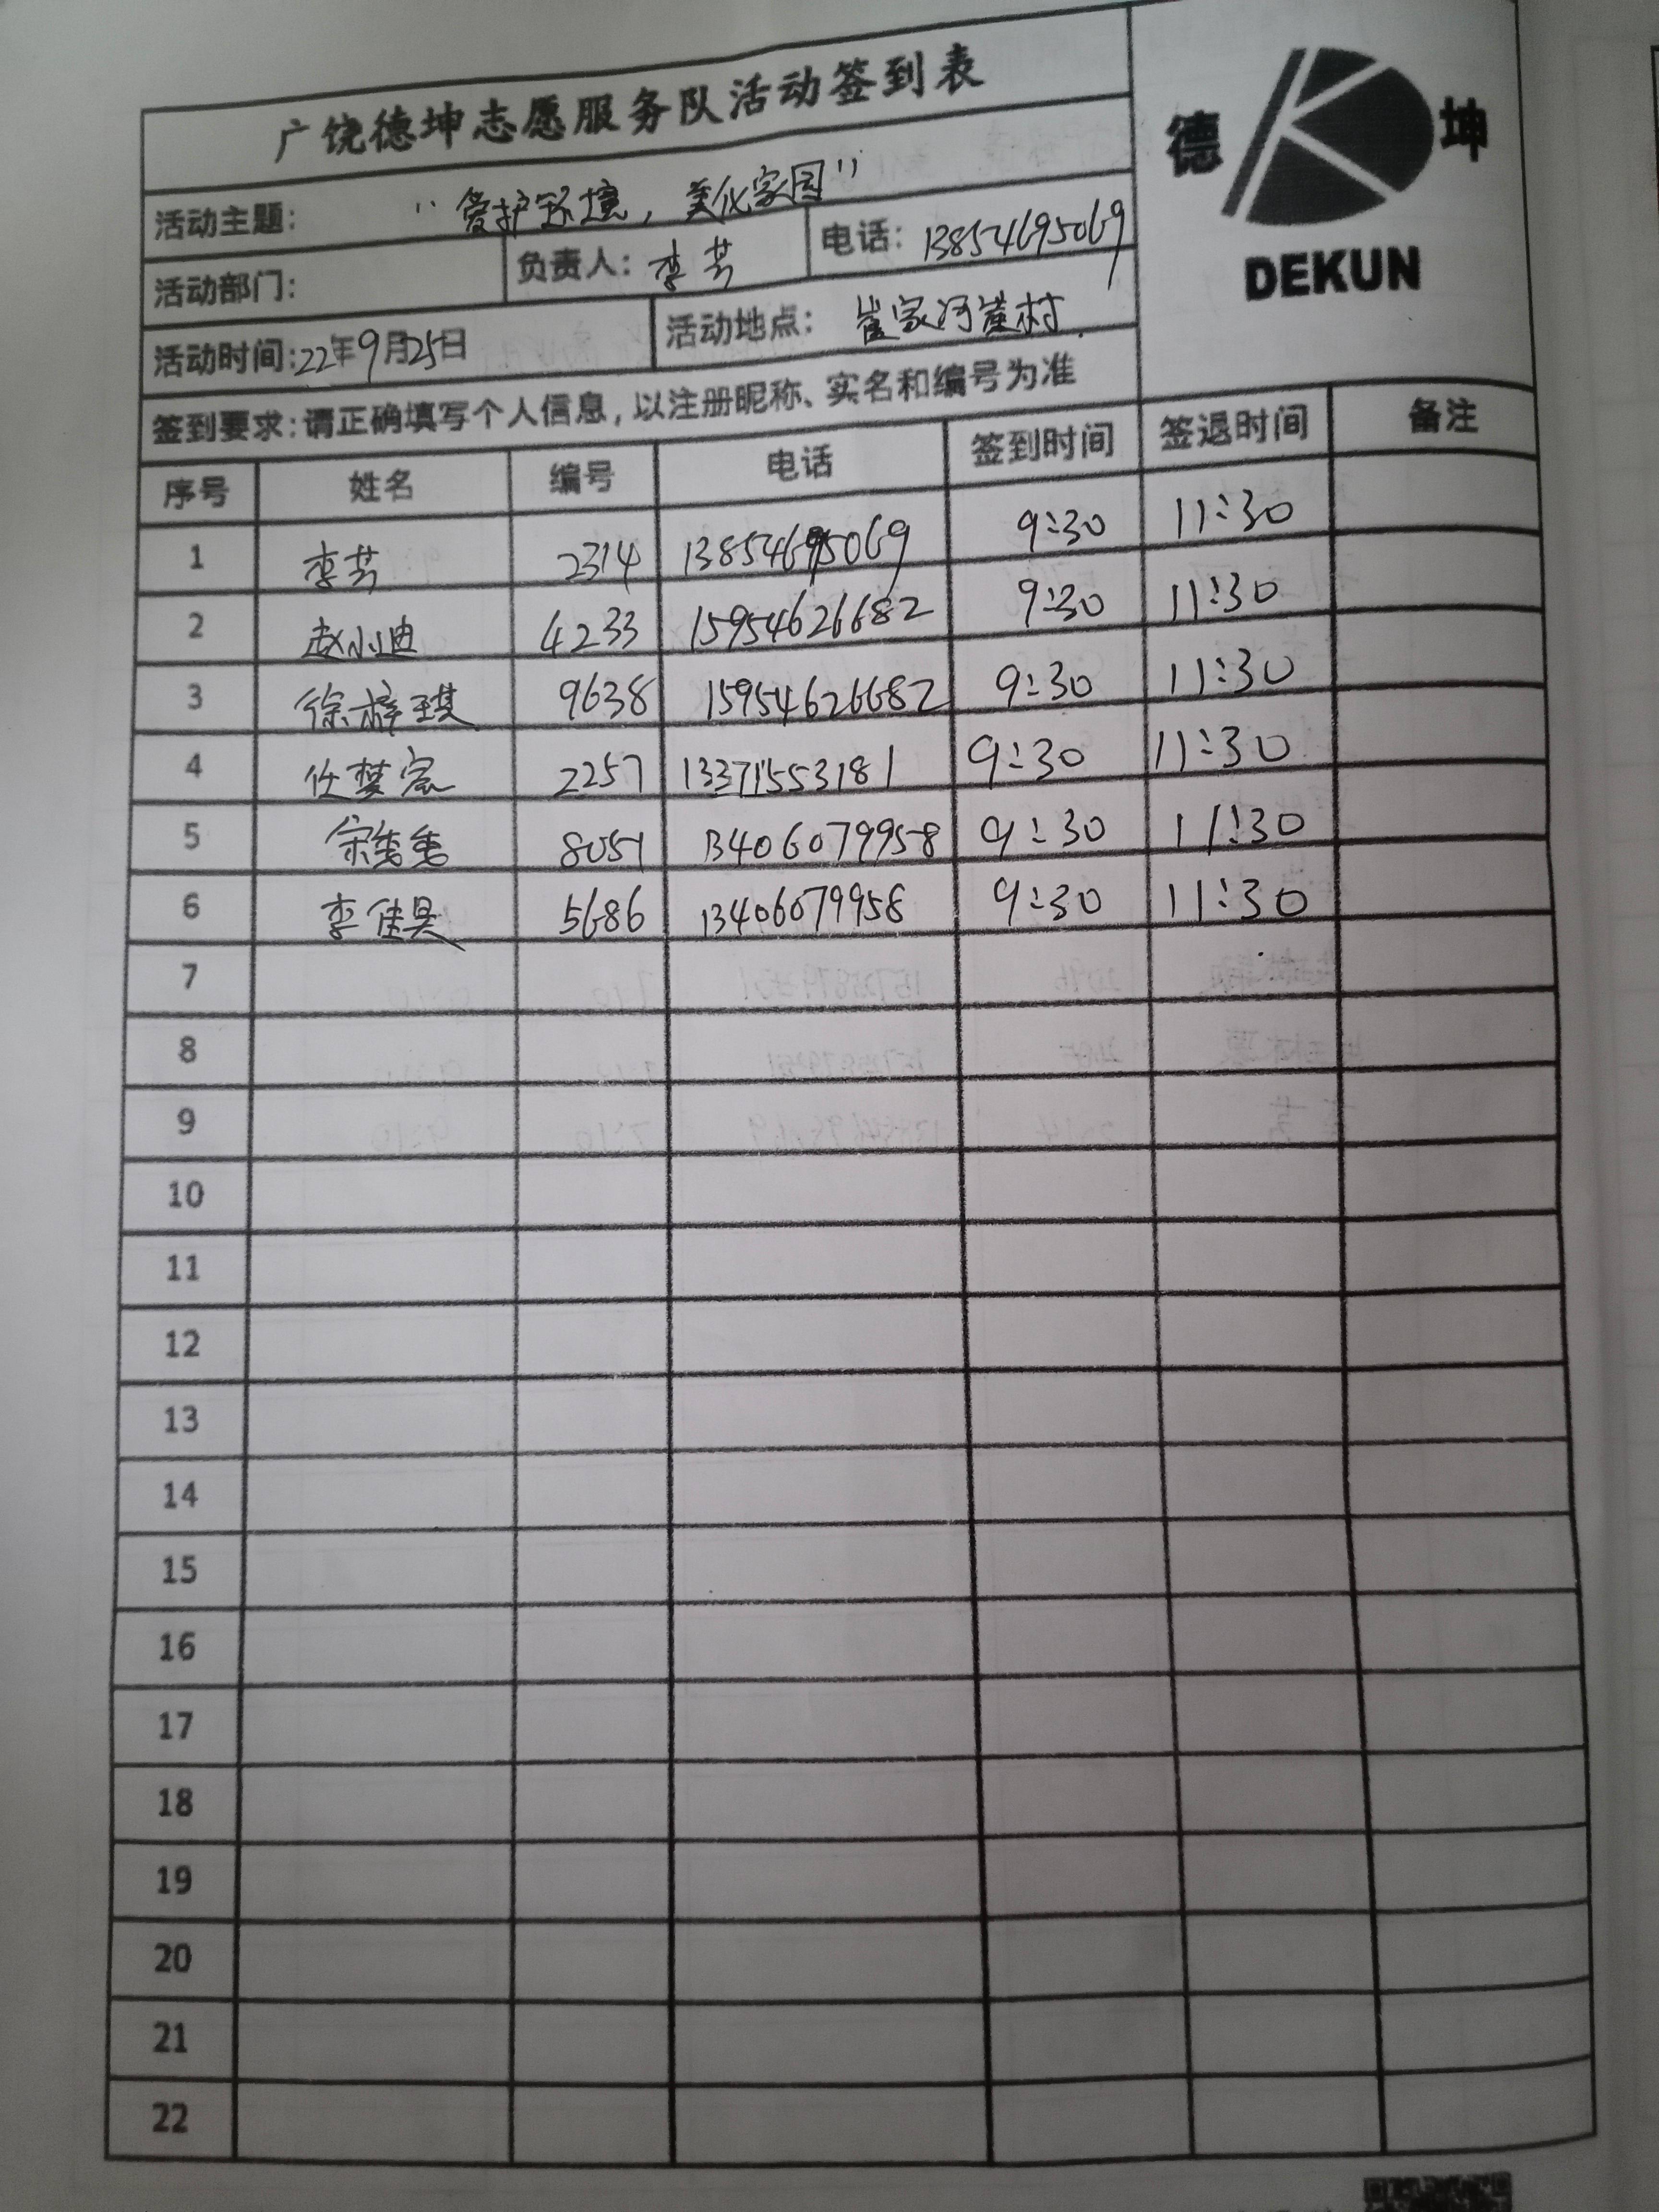 广饶德坤志愿服务队活动签到表
德 坤
DEKUN
活动主题： “爱护环境，美化家园”
活动部门： 负责人：李芳 电话：13854695069
活动时间：22年9月25日 活动地点：崔家河崖村
签到要求：请正确填写个人信息，以注册昵称、实名和编号为准
序号 姓名 编号 电话 签到时间 签退时间 备注
1 李芳 2314 13854695069 9:30 11:30
2 赵小迪 4233 15954626682 9:30 11:30
3 徐梓琪 9638 15954626682 9:30 11:30
4 任梦宸 2257 13371553181 9:30 11:30
5 宋秀秀 8051 13406079958 9:30 11:30
6 李佳昊 5686 13406079958 9:30 11:30
7
8
9
10
11
12
13
14
15
16
17
18
19
20
21
22